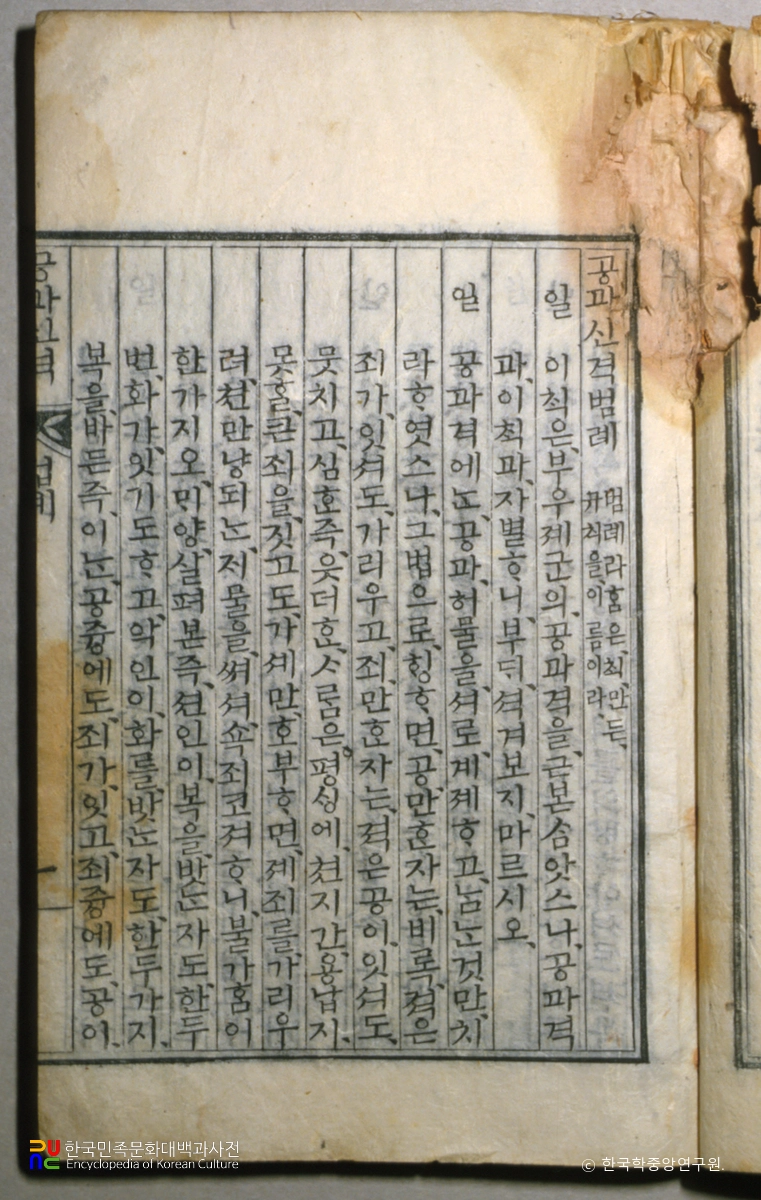 공과신격범례 범례라ᄒᆞᆷ은、ᄎᆡᆨ만든、
규식을、이름이라、
일 이ᄎᆡᆨ은、부우제군의、공과격을、근본ᄉᆞᆷ앗스나、공과격
과、이ᄎᆡᆨ과、자별ᄒᆞ니、부ᄃᆡ、셕겨보지、마르시오、
일 공과격에ᄂᆞᆫ、공과、허물을、셔로、계제ᄒᆞ고、남ᄂᆞᆫ것만、치
라ᄒᆞ엿스나、그법으로、ᄒᆡᆼᄒᆞ면、공만흔자는、비록、젹은
죄가、잇셔도、가리우고、죄만흔자는、젹은공이、잇셔도、
뭇치고、심ᄒᆞᆫ즉、웃더ᄒᆞᆫ、ᄉᆞᄅᆞᆷ은、평ᄉᆡᆼ에、쳔지간、용납지、
못ᄒᆞᆯ、큰죄을、짓고도、가셰만、호부ᄒᆞ면、제죄를、가리우
려、쳔만냥되ᄂᆞᆫ、ᄌᆡ물을、써셔、쇽죄코져ᄒᆞ니、불가홈이
한가지오、ᄆᆡ양、살펴본즉、션인이、복을、밧ᄂᆞᆫ자도、한두
번、화가、잇기도ᄒᆞ고、악인이、화를、밧ᄂᆞᆫ자도、한두가지、
복을、바든즉、이ᄂᆞᆫ、공즁에도、죄가、잇고、죄즁에도、공이、
공과신격 범례
한국민족문화대백과사전
Encyclopedia of Korean Culture
© 한국학중앙연구원.